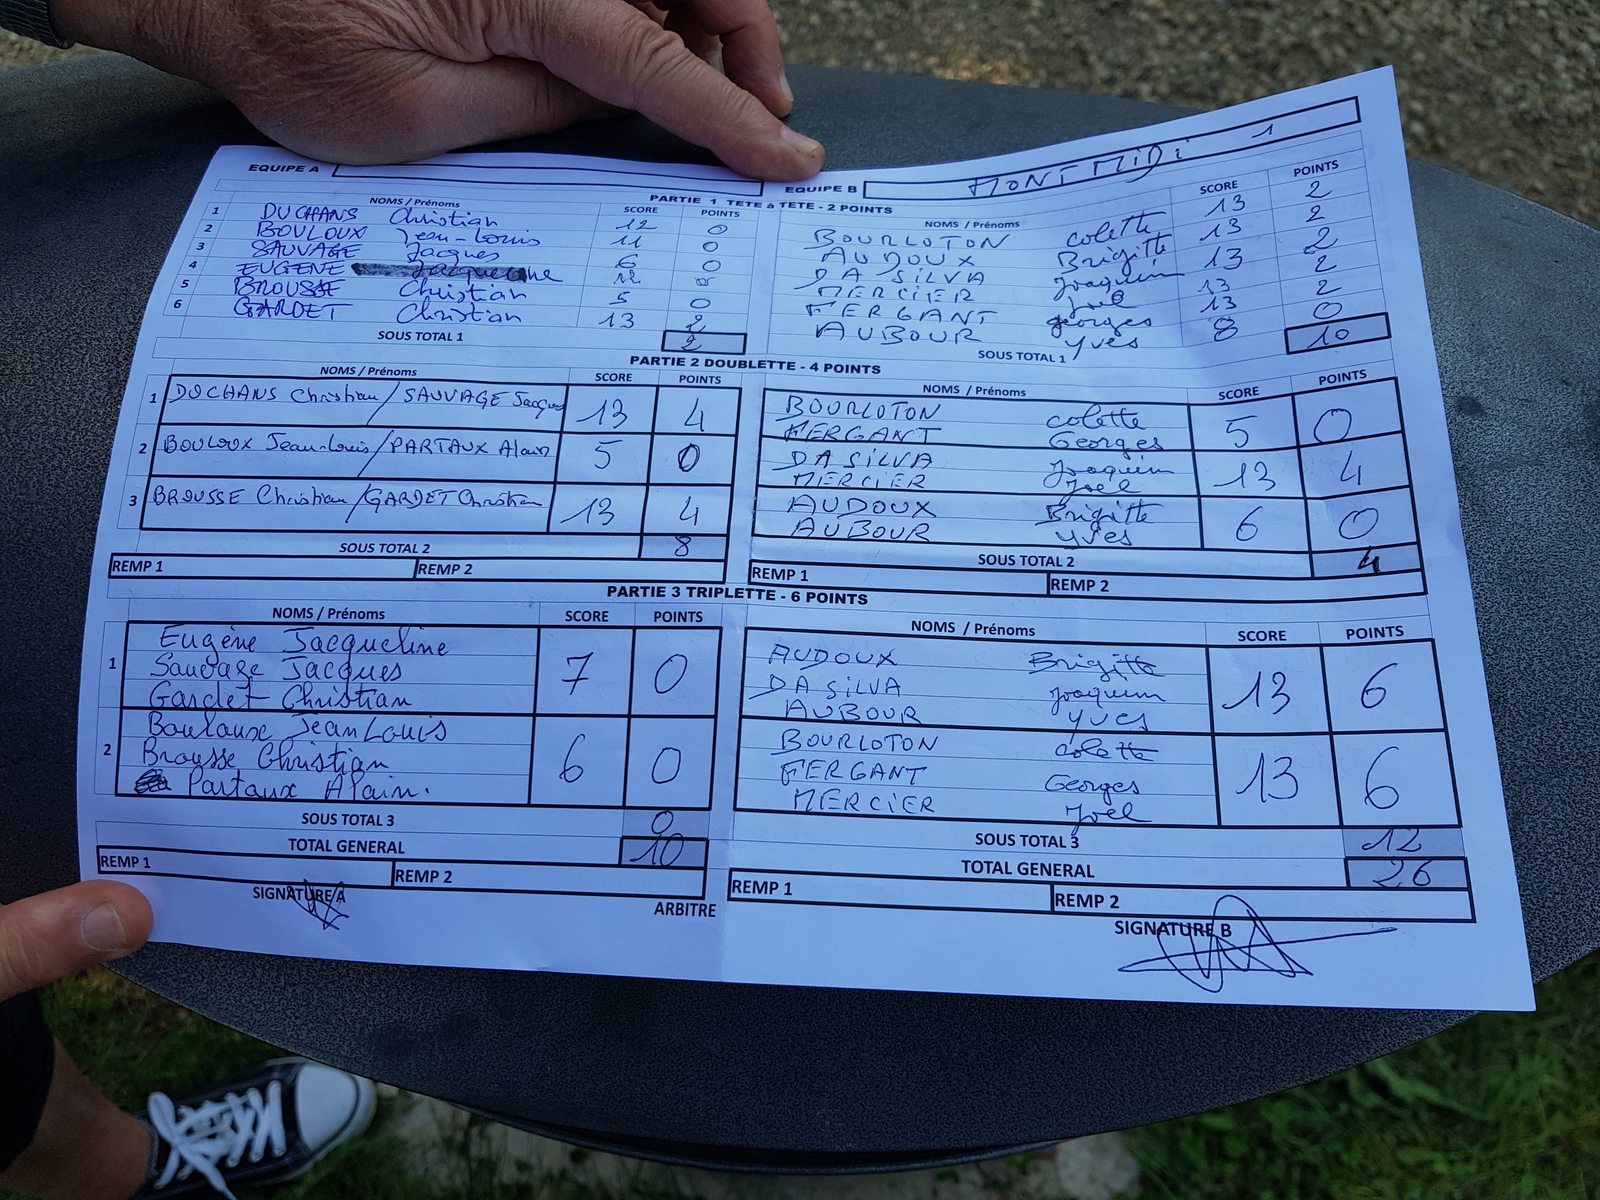 EQUIPE A
PARTIE 1 TETE à TETE - 2 POINTS
NOMS / Prénoms SCORE POINTS
1 DUCHANS Christian 12 0
2 BOULOUX Jean-Louis 11 0
3 SAUVAGE Jacques 6 0
4 EUGENE Jacqueline
5 BROUSSE Christian 5 0
6 GARDET Christian 13 2
SOUS TOTAL 1 2
EQUIPE B MONTMIDI 1
NOMS / Prénoms SCORE POINTS
BOURLOTON Colette 13 2
AUDOUX Brigitte 13 2
DA SILVA Joaquim 13 2
MERCIER Joel 13 2
FERGANT Georges 13 2
AUBOUR Yves 8 0
SOUS TOTAL 1 10
PARTIE 2 DOUBLETTE - 4 POINTS
NOMS / Prénoms SCORE POINTS
1 DUCHANS Christian / SAUVAGE Jacques 13 4
2 BOULOUX Jean-Louis / PARTAUX Alain 5 0
3 BROUSSE Christian / GARDET Christian 13 4
SOUS TOTAL 2 8
REMP 1 REMP 2
NOMS / Prénoms SCORE POINTS
BOURLOTON Colette
FERGANT Georges 5 0
DA SILVA Joaquim
MERCIER Joel 13 4
AUDOUX Brigitte
AUBOUR Yves 6 0
SOUS TOTAL 2 4
REMP 1 REMP 2
PARTIE 3 TRIPLETTE - 6 POINTS
NOMS / Prénoms SCORE POINTS
Eugène Jacqueline
1 Sauvage Jacques 7 0
Gardet Christian
Bouloux Jean Louis
2 Brousse Christian 6 0
Partaux Alain.
SOUS TOTAL 3 0
TOTAL GENERAL 10
REMP 1 REMP 2
SIGNATURE A
ARBITRE
NOMS / Prénoms SCORE POINTS
AUDOUX Brigitte
DA SILVA Joaquim 13 6
AUBOUR YVES
BOURLOTON Colette
FERGANT Georges 13 6
MERCIER Joel
SOUS TOTAL 3 12
TOTAL GENERAL 26
REMP 1 REMP 2
SIGNATURE B